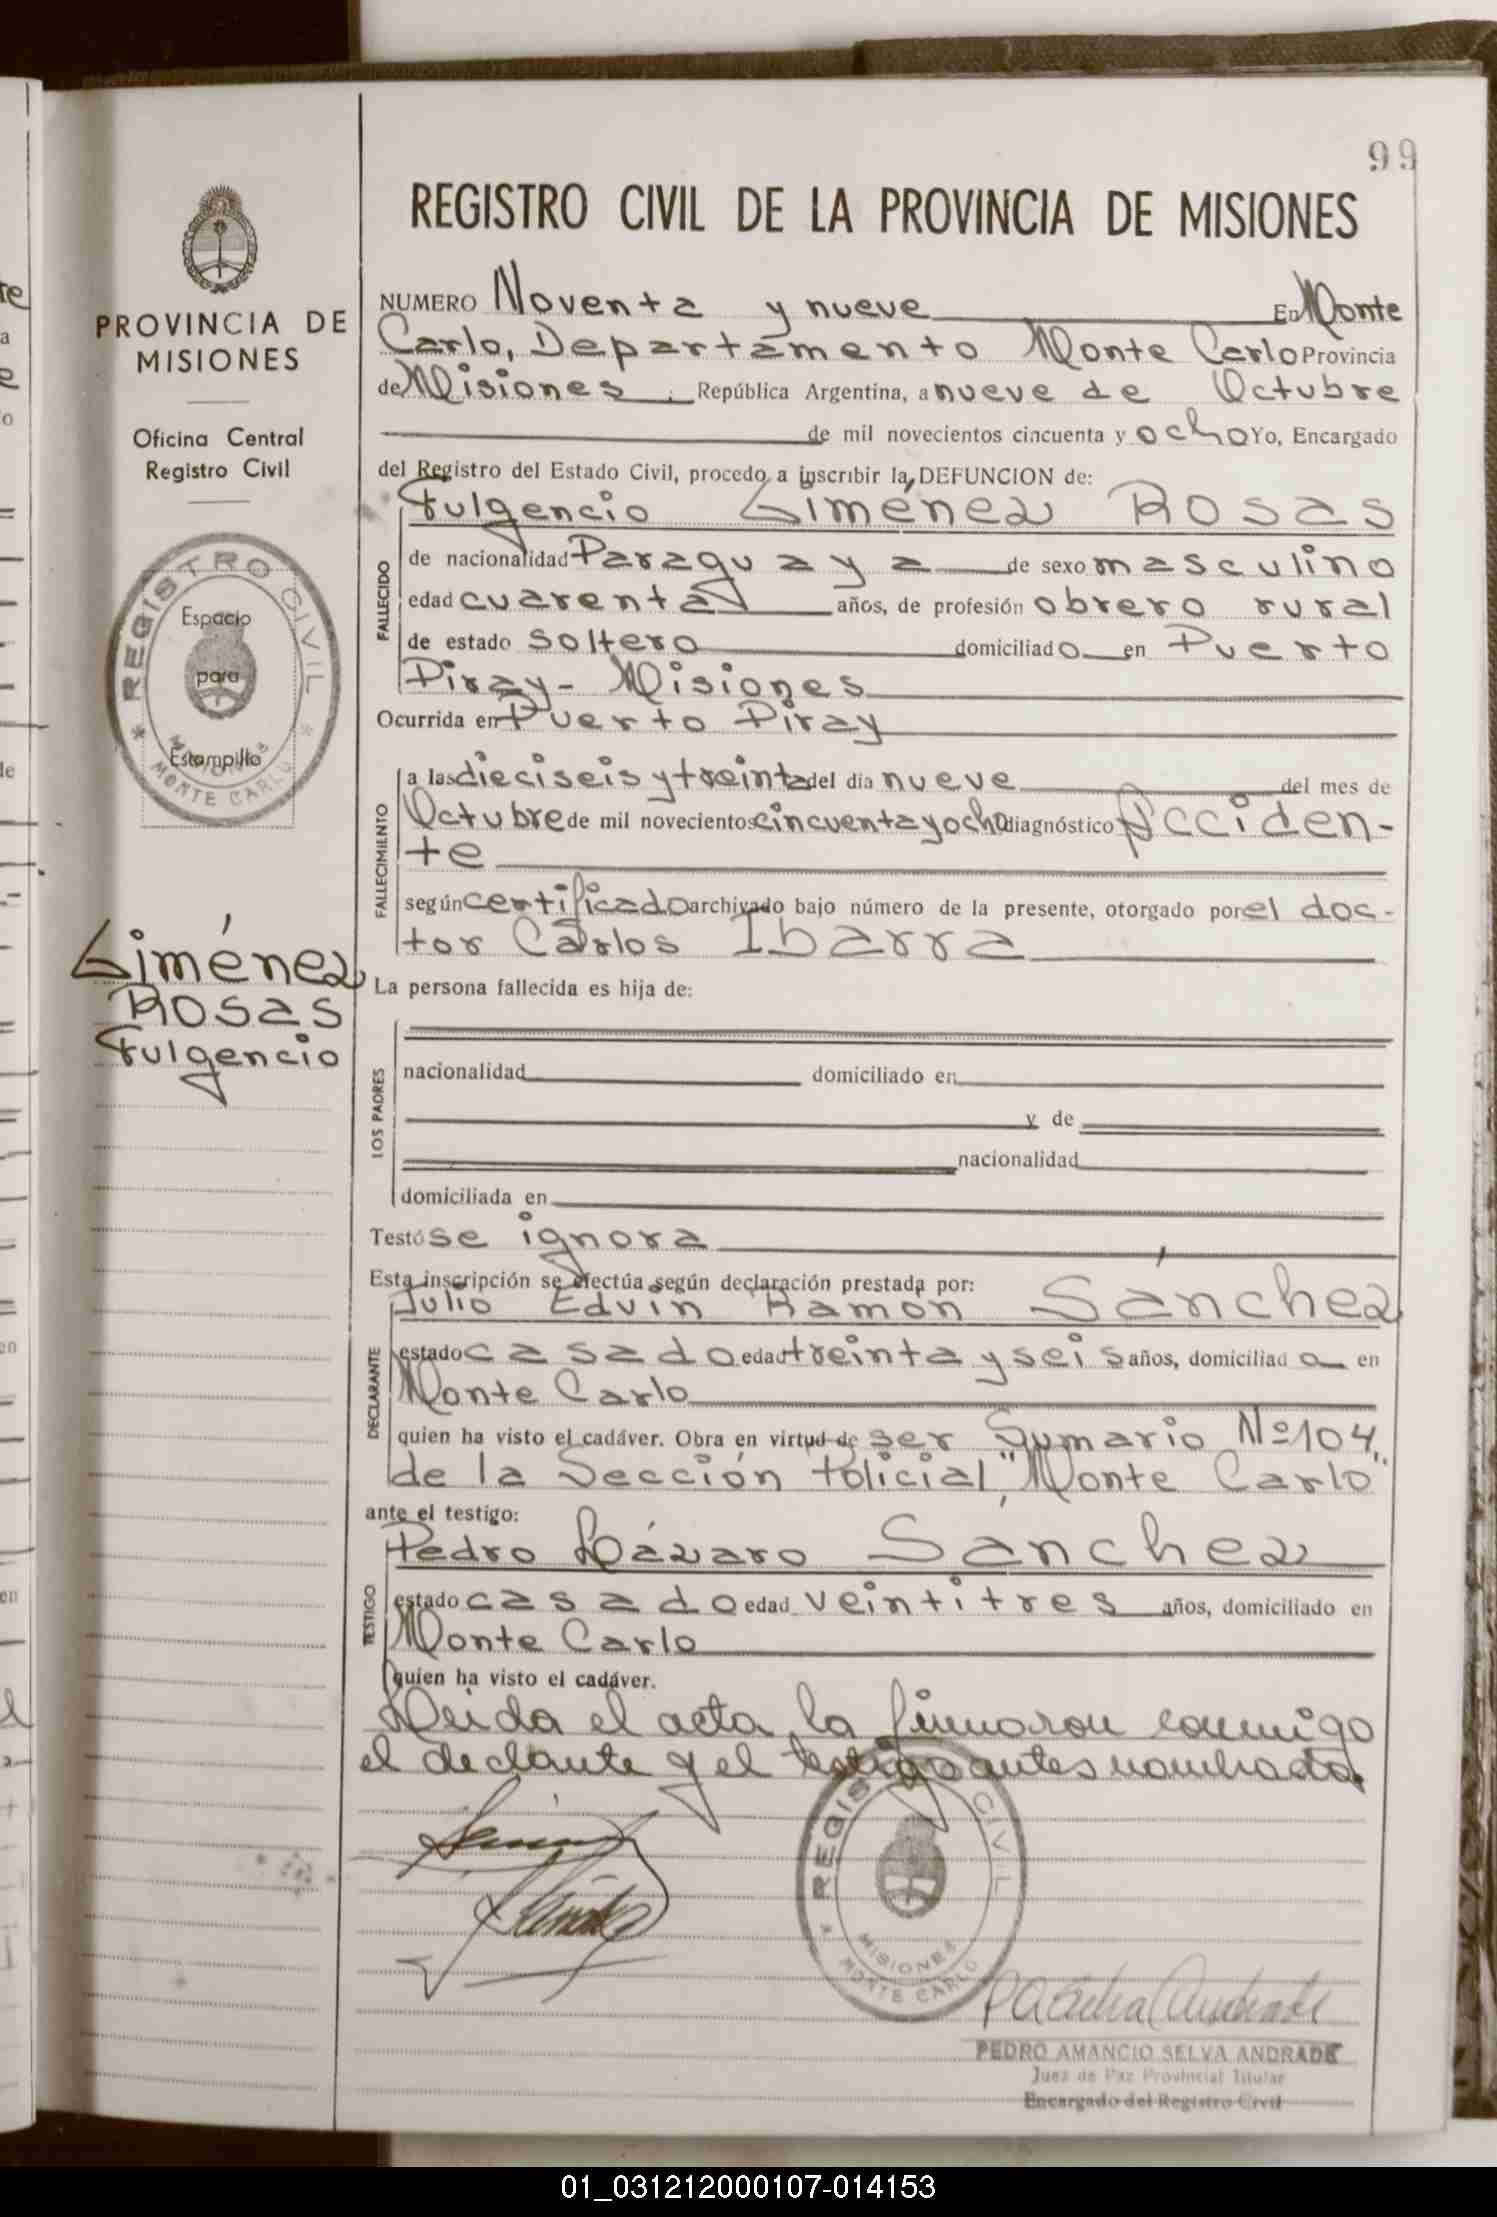 99
REGISTRO CIVIL DE LA PROVINCIA DE MISIONES
PROVINCIA DE
MISIONES
Oficina Central
Registro Civil
REGISTRO CIVIL
Espacio
para
Estampilla
MISIONES
MONTE CARLO
Giménez
Rosas
Fulgencio
NUMERO Noventa y nueve En Monte
Carlo, Departamento Monte Carlo Provincia
de Misiones. República Argentina, a nueve de Octubre
de mil novecientos cincuenta y ocho Yo, Encargado
del Registro del Estado Civil, procedo a inscribir la DEFUNCION de:
FALLECIDO
Fulgencio Giménez Rosas
de nacionalidad Paraguaya de sexo masculino
edad cuarenta años, de profesión obrero rural
de estado soltero domiciliado en Puerto
Piray - Misiones
Ocurrida en Puerto Piray
FALLECIMIENTO
a las dieciseis y treinta del día nueve del mes de
Octubre de mil novecientos cincuenta y ocho diagnóstico Acciden-
te
según certificado archivado bajo número de la presente, otorgado por el doc-
tor Carlos Ibarra
La persona fallecida es hija de:
LOS PADRES
nacionalidad domiciliado en
y de
nacionalidad
domiciliada en
Testó se ignora
Esta inscripción se efectúa según declaración prestada por:
DECLARANTE
Julio Edvin Ramón Sánchez
estado casado edad treinta y seis años, domiciliado en
Monte Carlo
quien ha visto el cadáver. Obra en virtud de ser Sumario Nº 104
de la Sección Policial "Monte Carlo"
ante el testigo:
TESTIGO
Pedro Lázaro Sánchez
estado casado edad veintitres años, domiciliado en
Monte Carlo
quien ha visto el cadáver.
Leida el acta, la firmaron conmigo
el declante y el testigo antes nombrado.
REGISTRO CIVIL
MISIONES
MONTE CARLO
PEDRO AMANCIO SELVA ANDRADE
Juez de Paz Provincial Titular
Encargado del Registro Civil
01_031212000107-014153